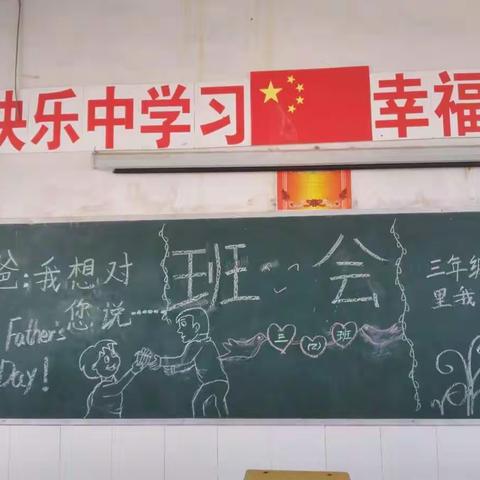 快乐中学习
幸福
爸:我想对
您说……
Father's
Day!
班会
三四班
三年级
里我